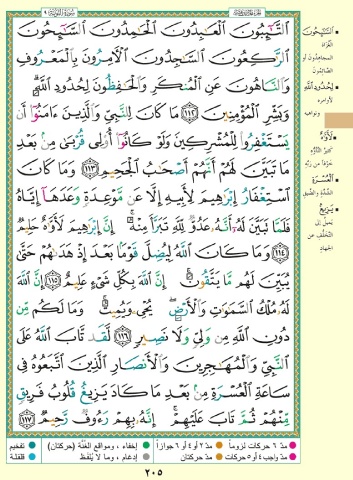 الجزء الحادي عشر سورة التوبة ٩
ٱلتَّـٰٓئِبُونَ ٱلْعَـٰبِدُونَ ٱلْحَـٰمِدُونَ ٱلسَّـٰٓئِحُونَ
ٱلرَّٰكِعُونَ ٱلسَّـٰجِدُونَ ٱلْـَٔامِرُونَ بِٱلْمَعْرُوفِ
وَٱلنَّاهُونَ عَنِ ٱلْمُنكَرِ وَٱلْحَـٰفِظُونَ لِحُدُودِ ٱللَّهِ ۗ
وَبَشِّرِ ٱلْمُؤْمِنِينَ ١١٢ مَا كَانَ لِلنَّبِيِّ وَٱلَّذِينَ ءَامَنُوٓا۟ أَن
يَسْتَغْفِرُوا۟ لِلْمُشْرِكِينَ وَلَوْ كَانُوٓا۟ أُو۟لِى قُرْبَىٰ مِنۢ بَعْدِ
مَا تَبَيَّنَ لَهُمْ أَنَّهُمْ أَصْحَـٰبُ ٱلْجَحِيمِ ١١٣ وَمَا كَانَ
ٱسْتِغْفَارُ إِبْرَٰهِيمَ لِأَبِيهِ إِلَّا عَن مَّوْعِدَةٍ وَعَدَهَآ إِيَّاهُ
فَلَمَّا تَبَيَّنَ لَهُۥٓ أَنَّهُۥ عَدُوٌّ لِّلَّهِ تَبَرَّأَ مِنْهُ ۚ إِنَّ إِبْرَٰهِيمَ لَأَوَّٰهٌ حَلِيمٌ
١١٤ وَمَا كَانَ ٱللَّهُ لِيُضِلَّ قَوْمًۢا بَعْدَ إِذْ هَدَىٰهُمْ حَتَّىٰ
يُبَيِّنَ لَهُم مَّا يَتَّقُونَ ۚ إِنَّ ٱللَّهَ بِكُلِّ شَىْءٍ عَلِيمٌ ١١٥ إِنَّ ٱللَّهَ
لَهُۥ مُلْكُ ٱلسَّمَـٰوَٰتِ وَٱلْأَرْضِ ۖ يُحْىِۦ وَيُمِيتُ ۚ وَمَا لَكُم مِّن
دُونِ ٱللَّهِ مِن وَلِىٍّ وَلَا نَصِيرٍ ١١٦ لَّقَد تَّابَ ٱللَّهُ عَلَى
ٱلنَّبِىِّ وَٱلْمُهَـٰجِرِينَ وَٱلْأَنصَارِ ٱلَّذِينَ ٱتَّبَعُوهُ فِى
سَاعَةِ ٱلْعُسْرَةِ مِنۢ بَعْدِ مَا كَادَ يَزِيغُ قُلُوبُ فَرِيقٍ
مِّنْهُمْ ثُمَّ تَابَ عَلَيْهِمْ ۚ إِنَّهُۥ بِهِمْ رَءُوفٌ رَّحِيمٌ ١١٧
السَّائِحُونَ
الغُزَاةُ
المجاهِدُونَ أو
الصَّائِمُونَ
لِحُدُودِ اللَّهِ
لأوامره
ونواهيه
لَأَوَّاهٌ
كثيرُ التَّأوُّه
خوفًا من ربِّه
العُسْرَةِ
الشِّدَّةِ والضِّيقِ
يَزِيغُ
يَمِيلُ إلى
التَّخَلُّفِ عن
الجهادِ
مدّ ٦ حركات لزوماً مدّ ٢ أو ٤ أو ٦ جوازاً إخفاء، ومواقع الغنّة (حركتان) تفخيم
مدّ واجب ٤ أو ٥ حركات مدّ حركتان إدغام، وما لا يُلفظ قلقلة
٢٠٥